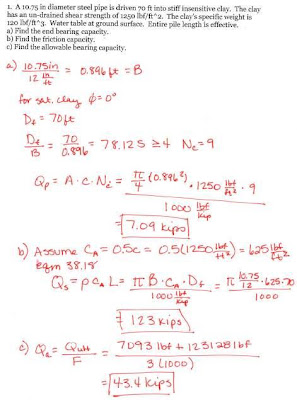 1. A 10.75 in diameter steel pipe is driven 70 ft into stiff insensitive clay. The clay
has an un-drained shear strength of 1250 lbf/ft^2. The clay's specific weight is
120 lbf/ft^3. Water table at ground surface. Entire pile length is effective.
a) Find the end bearing capacity.
b) Find the friction capacity.
c) Find the allowable bearing capacity.
a) 10.75in / 12 in/ft = 0.896 ft = B
for sat. clay φ = 0°
Df = 70ft
Df/B = 70/0.896 = 78.125 ≥ 4 Nc = 9
Qp = A·c·Nc = π/4 (0.896²) · 1250 lbf/ft² · 9
1000 lbf/kip
= 7.09 kips
b) Assume CA = 0.5c = 0.5(1250 lbf/ft²) = 625 lbf/ft²
eqn 38.18
Qs = p CA L = πB·CA·Df = π 10.75/12 · 625·70
1000 lbf/kip 1000
= 123 kips
c) Qa = Qult/F = 7093 lbf + 123128 lbf
3 (1000)
= 43.4 kips